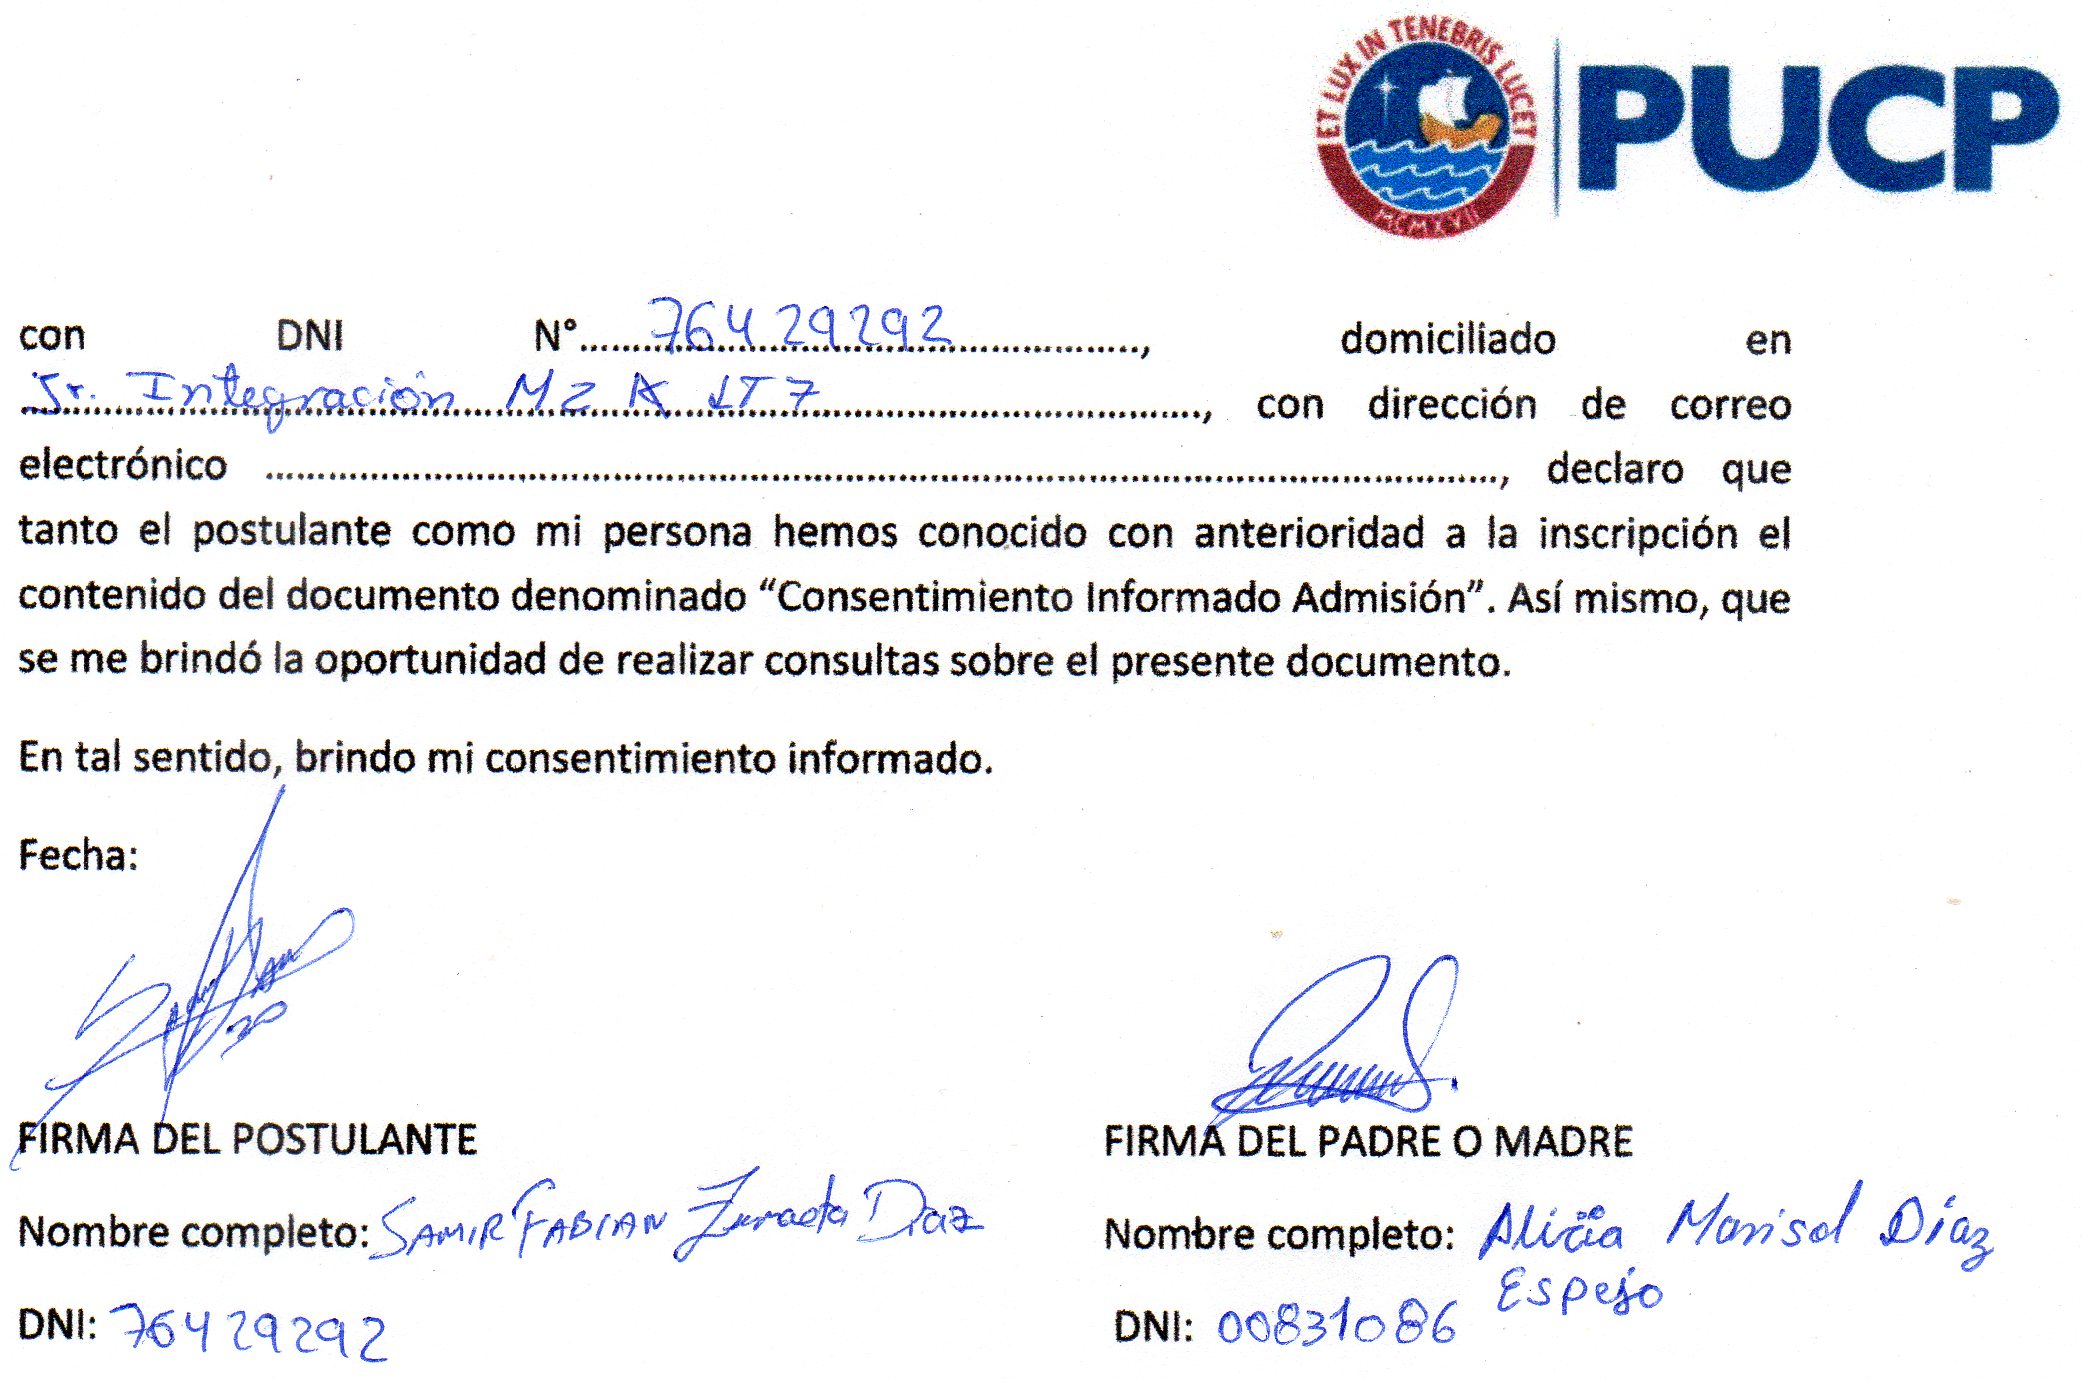 ET LUX IN TENEBRIS LUCET
MCMXVII
PUCP
con DNI N°76429292, domiciliado en
Jr. Integración MZ A LT 7, con dirección de correo
electrónico ........................................, declaro que
tanto el postulante como mi persona hemos conocido con anterioridad a la inscripción el
contenido del documento denominado “Consentimiento Informado Admisión”. Así mismo, que
se me brindó la oportunidad de realizar consultas sobre el presente documento.
En tal sentido, brindo mi consentimiento informado.
Fecha:
FIRMA DEL POSTULANTE
Nombre completo: SAMIR FABIAN Zurada Diaz
DNI: 76429292
FIRMA DEL PADRE O MADRE
Nombre completo: Alicia Marisol Díaz
Espejo
DNI: 00831086